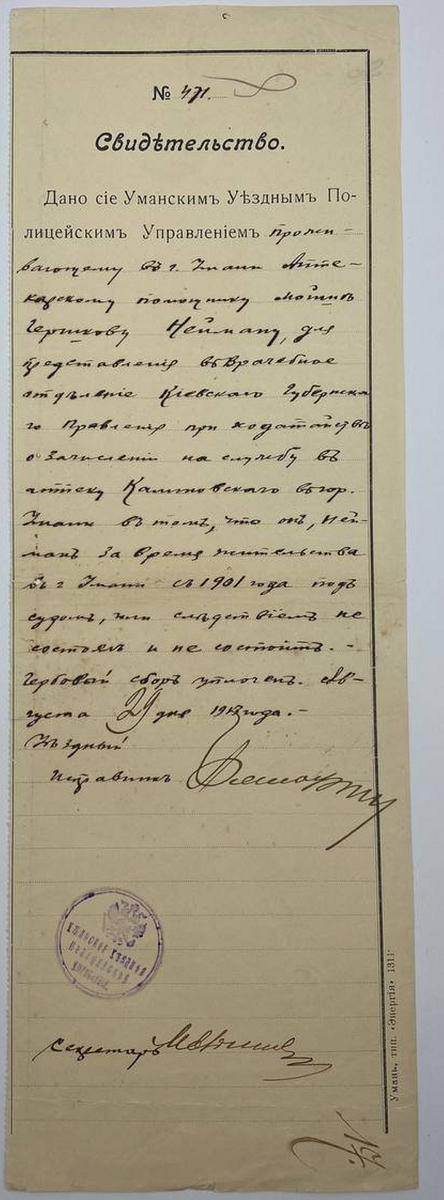 № 471.
Свидѣтельство.
Дано сіе Уманскимъ Уѣзднымъ По-
лицейскимъ Управленіемъ прожи-
вающему въ г. Умани Апте-
карскому помощнику
Гершкову Нейману, для
представленія въ Врачебное
отдѣленіе Кіевскаго Губернска-
го Правленія при ходатайствѣ
о зачисленіи на службу въ
аптеку Калиновскаго въ гор.
Умани въ томъ, что онъ, Ней-
манъ за время жительства
въ г. Умани съ 1901 года подъ
судомъ, или слѣдствіемъ не
состоялъ и не состоитъ. -
Гербовый сборъ уплоченъ. Ав-
густа 29 дня года. -
Уѣздный
Исправникъ
УМАНСКОЕ УѢЗДНОЕ
ПОЛИЦЕЙСКОЕ
УПРАВЛЕНІЕ
Секретарь
Умань, тип. «Энергія» 1311